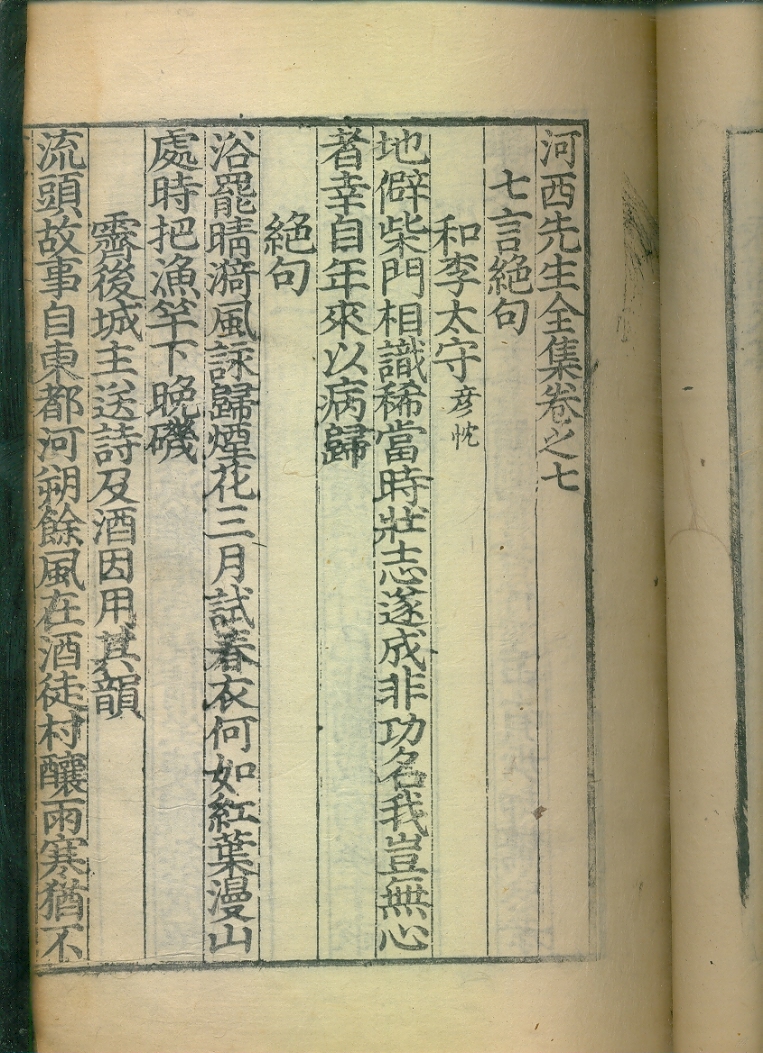 河西先生全集卷之七
七言絕句
和李太守彥忱
地僻柴門相識稀當時壯志遂成非功名我豈無心
者幸自年來以病歸
絕句
浴罷晴漪風詠歸煙花三月試春衣何如紅葉漫山
處時把漁竿下晚磯
霽後城主送詩及酒因用其韻
流頭故事自東都河朔餘風在酒徒村釀雨寒猶不